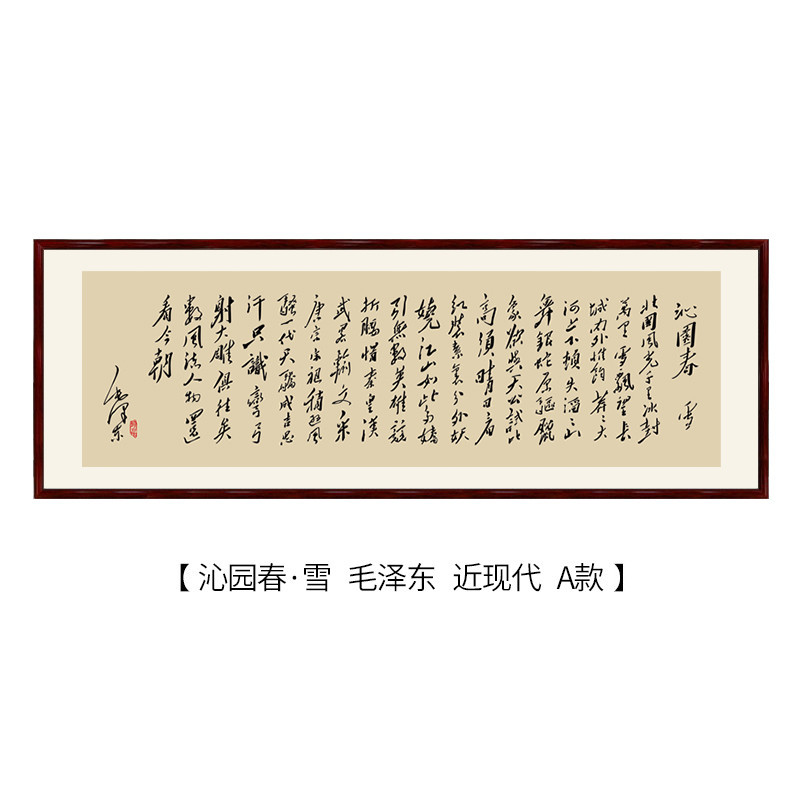 沁園春 雪
北國風光千里冰封
萬里雪飄望長
城內外惟餘莽々大
河上下頓失滔々山
舞銀蛇原驅臘
象欲與天公試比
高須晴日看
紅裝素裹分外妖
嬈江山如此多嬌
引無數英雄競
折腰惜秦皇漢
武略輸文采
唐宗宋祖稍遜風
騷一代天驕成吉思
汗只識彎弓
射大雕俱往矣
數風流人物還
看今朝
毛澤東
【沁园春·雪 毛泽东 近现代 A款】